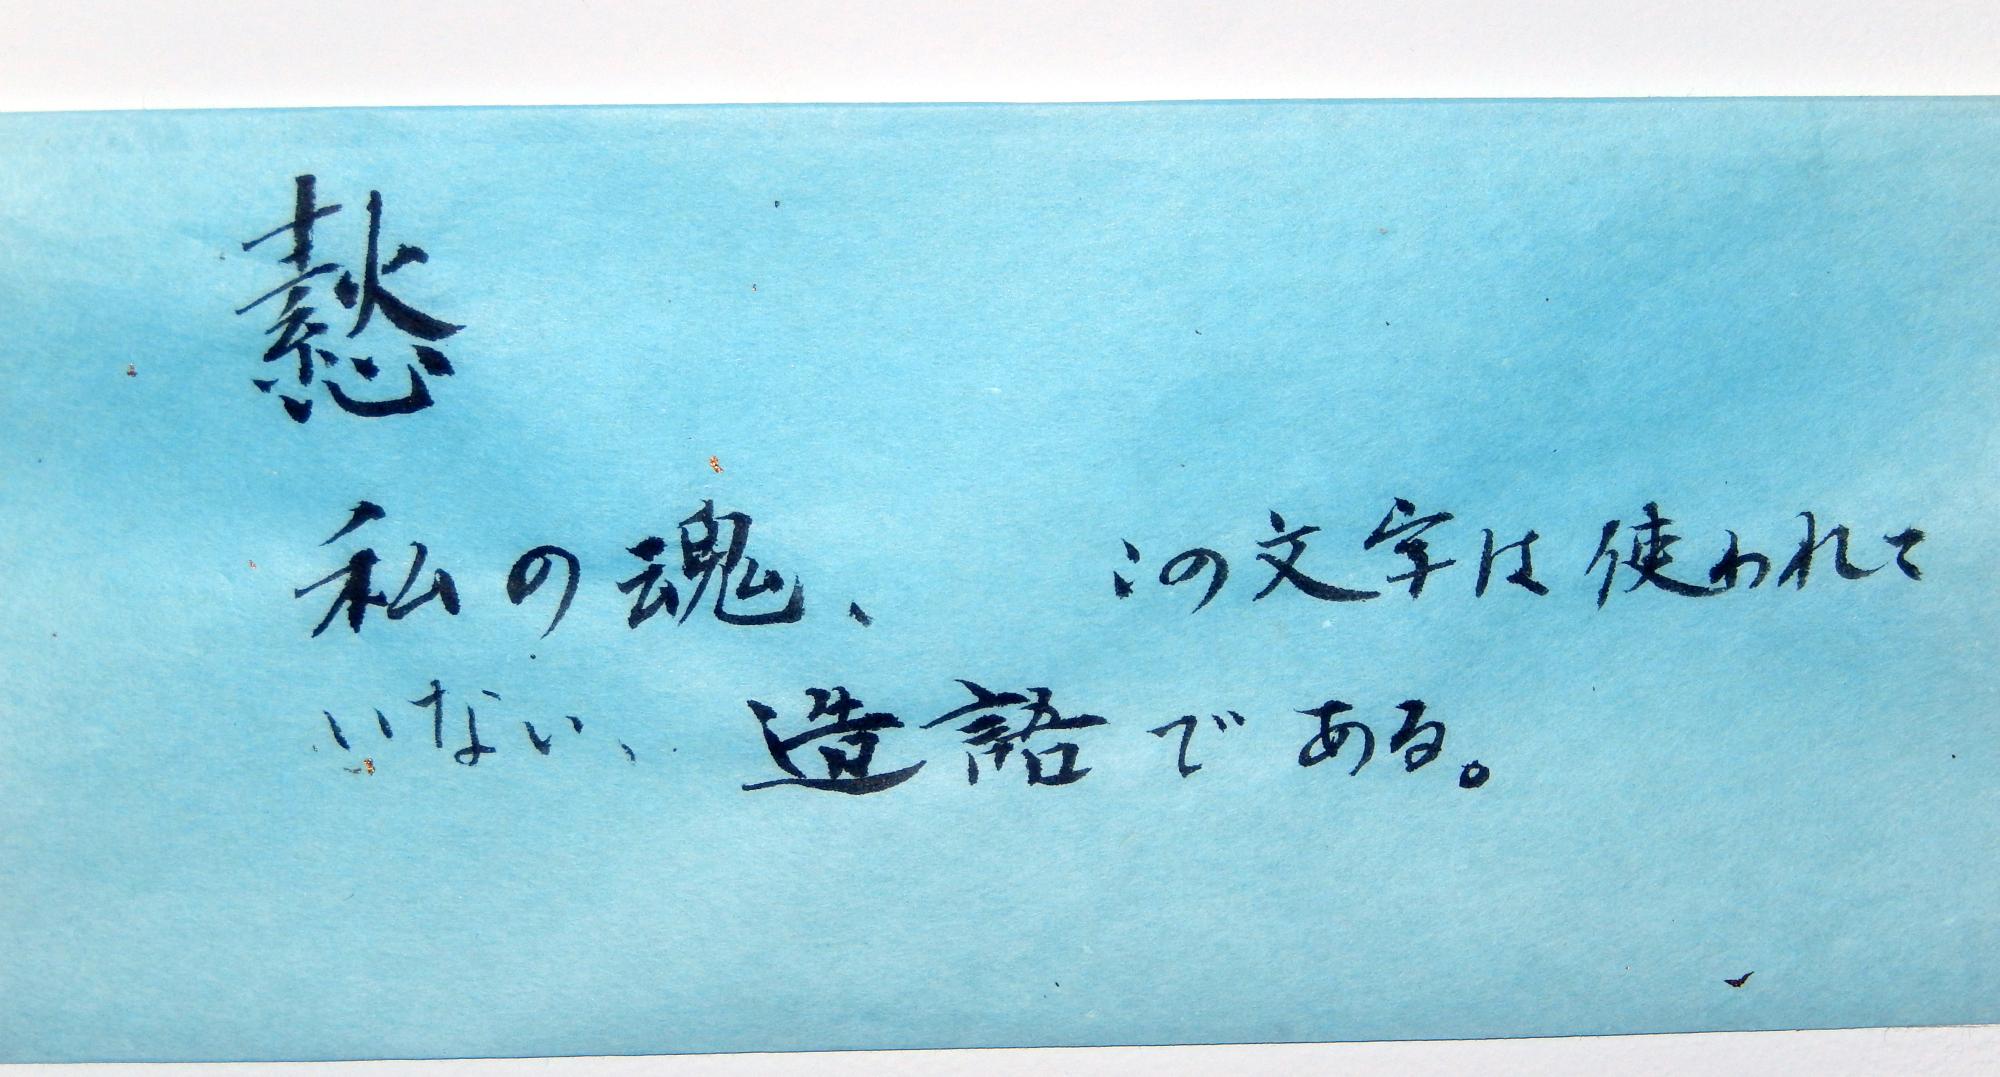 私の魂、 この文字は使われて
いない、 造語である。